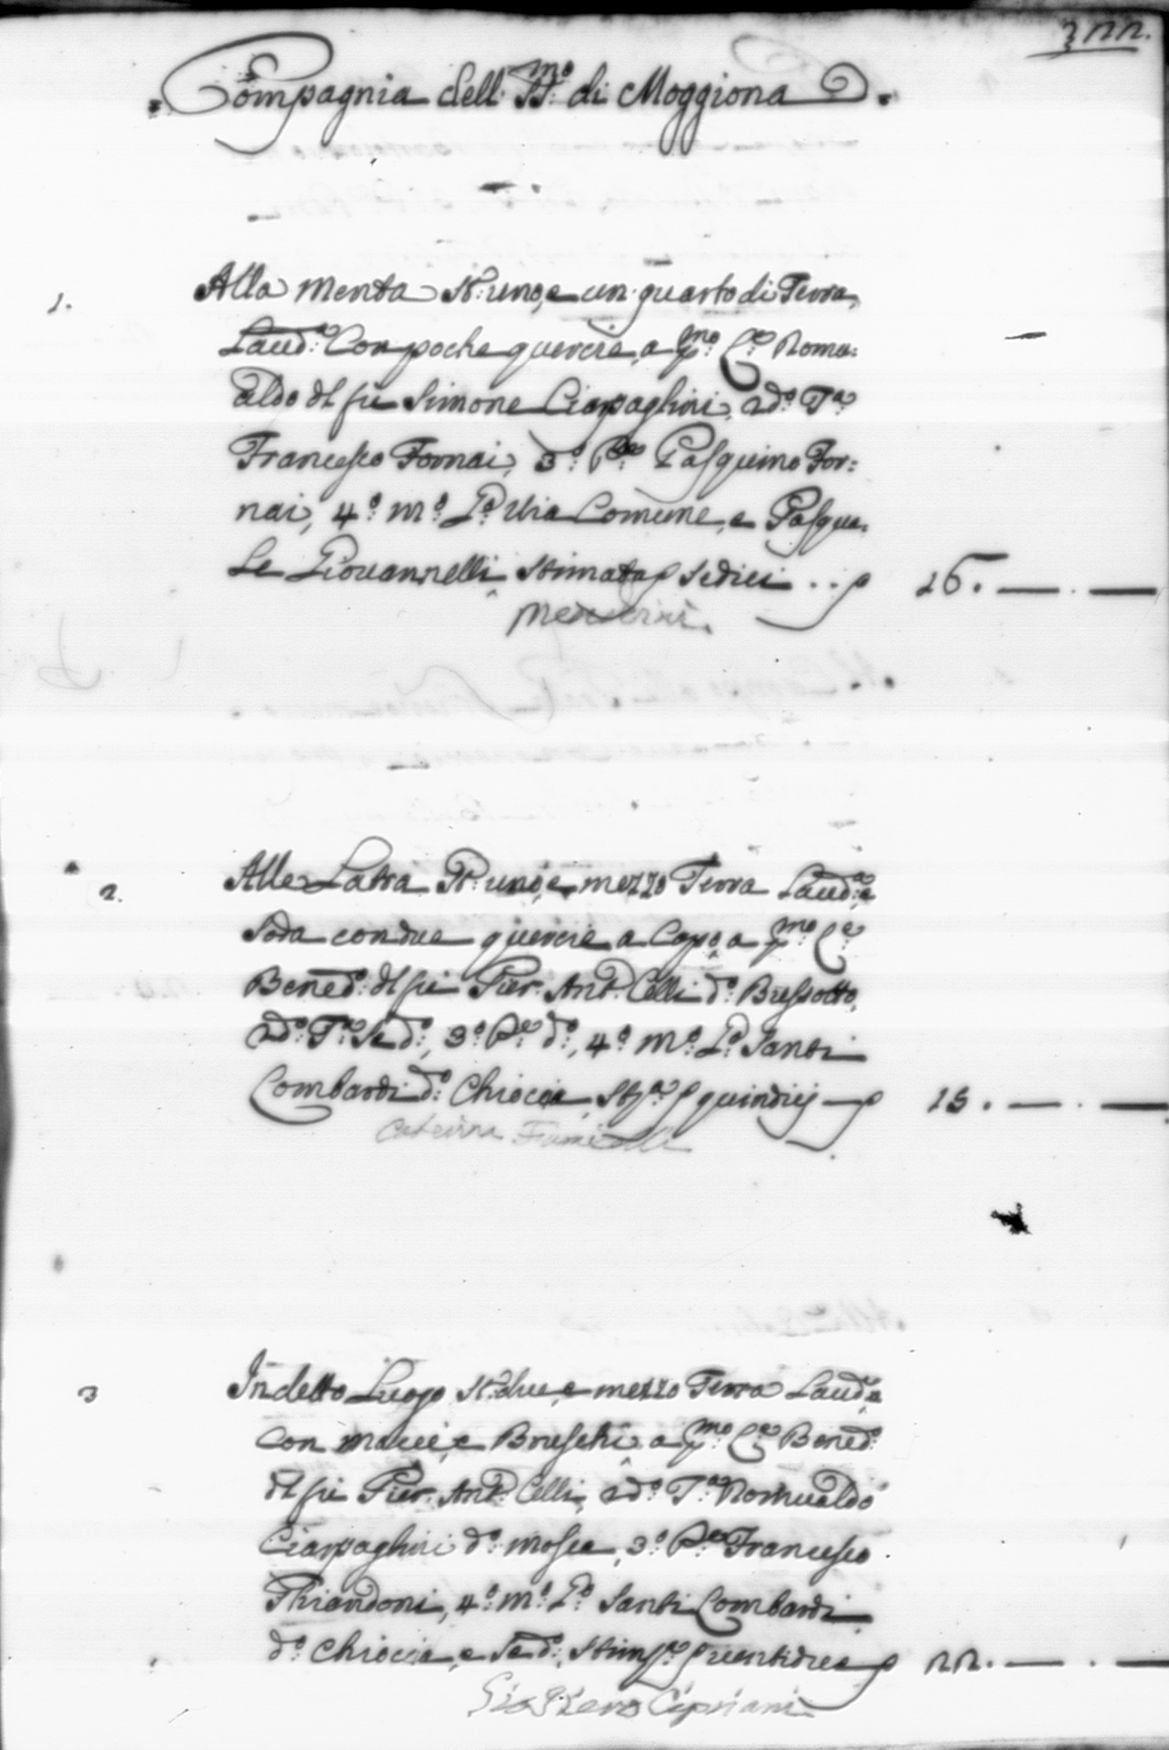 322.
Compagnia dell SS.mo di Moggiona
1. Alla Menta St: uno, e un quarto di Terra
Laud:a Con poche quercie, a p:mo C:e Romu:
aldo del fu Simone Ciarpaglini, 2do: T:a
Francesco Fornai, 3:o P:e Pasquino For:
nai, 4:o m:o L:o Via Comune, e Pasqua:
le Giovannelli, stimata sedici .. 16. — . —
2. Alle Latra St: uno, e mezzo Terra Laud:a e
soda con due quercie a Capo, a p:mo C:e
Bened:o del fu Pier Ant:o Celli d:o Bressotto,
2do: T:a Se d:o, 3:o P:e d:o, 4:o m:o L:o Santi
Lombardi d:o Chioccia, St:a quindici 15. — . —
Caterina
3 In detto Luogo St: due, e mezzo Terra Laud:a
con macie, e Bruschi a p:mo C:e Bened:o
del fu Pier Ant:o Celli, 2do: T:a Romualdo
Ciarpaglini d:o Mosce, 3:o P:e Francesco
Ghiandoni, 4:o m:o L:o Santi Lombardi
d:o Chioccia, e Se d:o, Stim:a ventidue 22. — . —
Gio Piero Cipriani